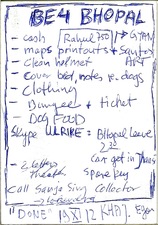 BE4 BHOPAL
- cash Rahul 750 GYAN
- maps printouts + Santosh
- Clean helmet ART
- Cover bed, notes re. dogs
- Clothing
- Bungee + ticket
- Dog Food
Skype ULRIKE = Bhopal Leave
2
Car get in
- 2 letters Spare key
theatre
Call Sanjay Sing Collector
"DONE" 19 XI 12 KHAJ.